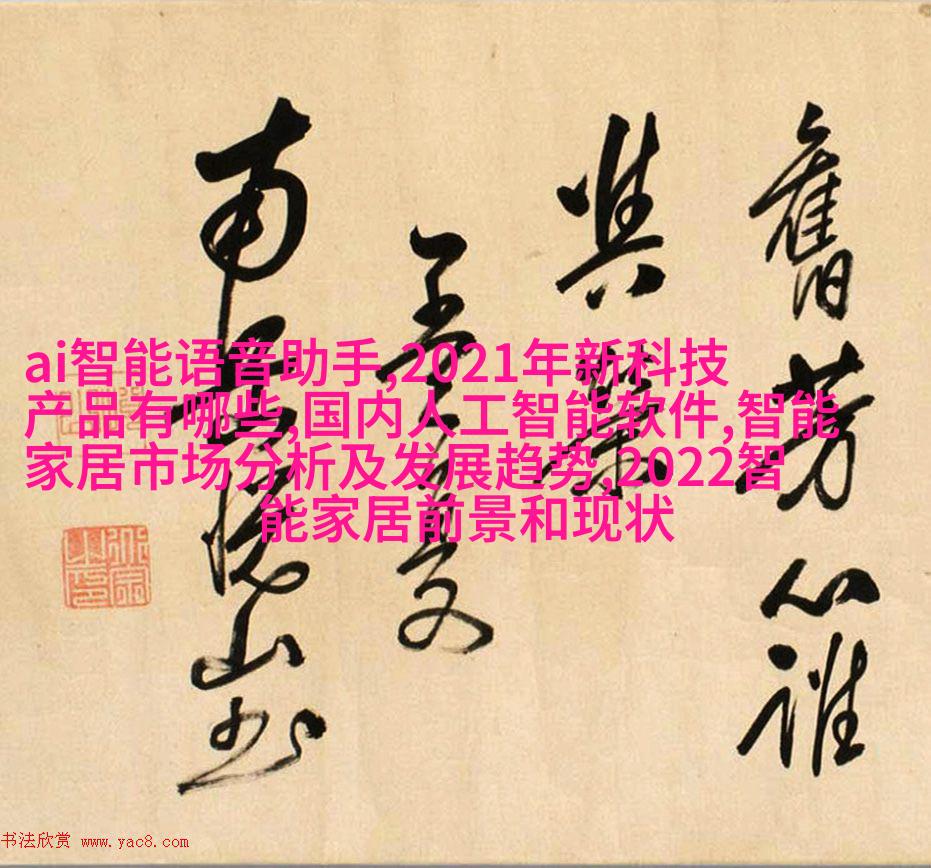 ai智能语音助手,2021年新科技
产品有哪些,国内人工智能软件,智能
家居市场分析及发展趋势,2022智
能家居前景和现状
舊芳心誰
南山书
书法欣赏 www.yac8.com